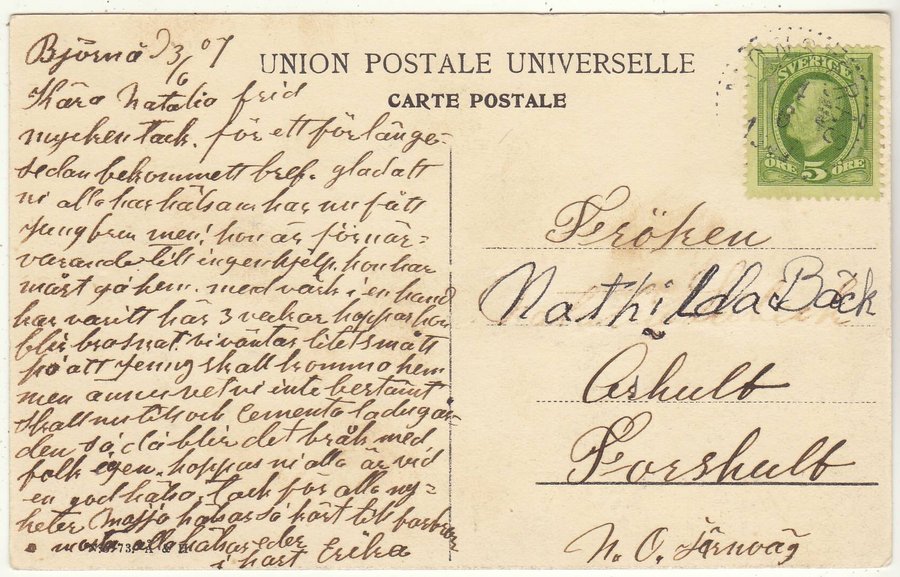 Björnå 3/6 07
Kära Natalia frid
mycken tack. för ett för länge-
sedan bekommett bref. glad att
ni alla har hälsan har nu fått
Jungfrun men! hon är förnär=
varande till ingen hjelp. hon har
måst gå hem. med värk i en hand
har varitt här 3 vekor hoppas hon
blir bra snat. vi väntar litet smått
på att Jenny skall komma hem
men ännu vet vi inte bestämt
skall nu till och Cementa ladugår
den så då blir det bråk med
folk igen. hoppas ni alla är vid
en god hälsa. tack för alla ny=
heter Majja hälsar så kärt till
alla hälsar eder
i kärt Erika
UNION POSTALE UNIVERSELLE
CARTE POSTALE
SVERIGE
ÖRE 5 ÖRE
Fröken
Nathilda Bäck
Ashult
Forshult
N. O. Järnväg